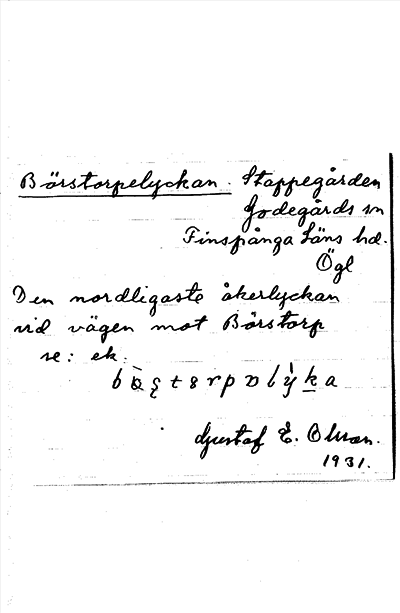 Börstorpelyckan. Stappegården
Godegårds sn
Finspånga Läns hd.
Ögl
Den nordligaste åkerlyckan
vid vägen mot Börstorp
se: ek.
Gustaf E. Olsson.
1931.